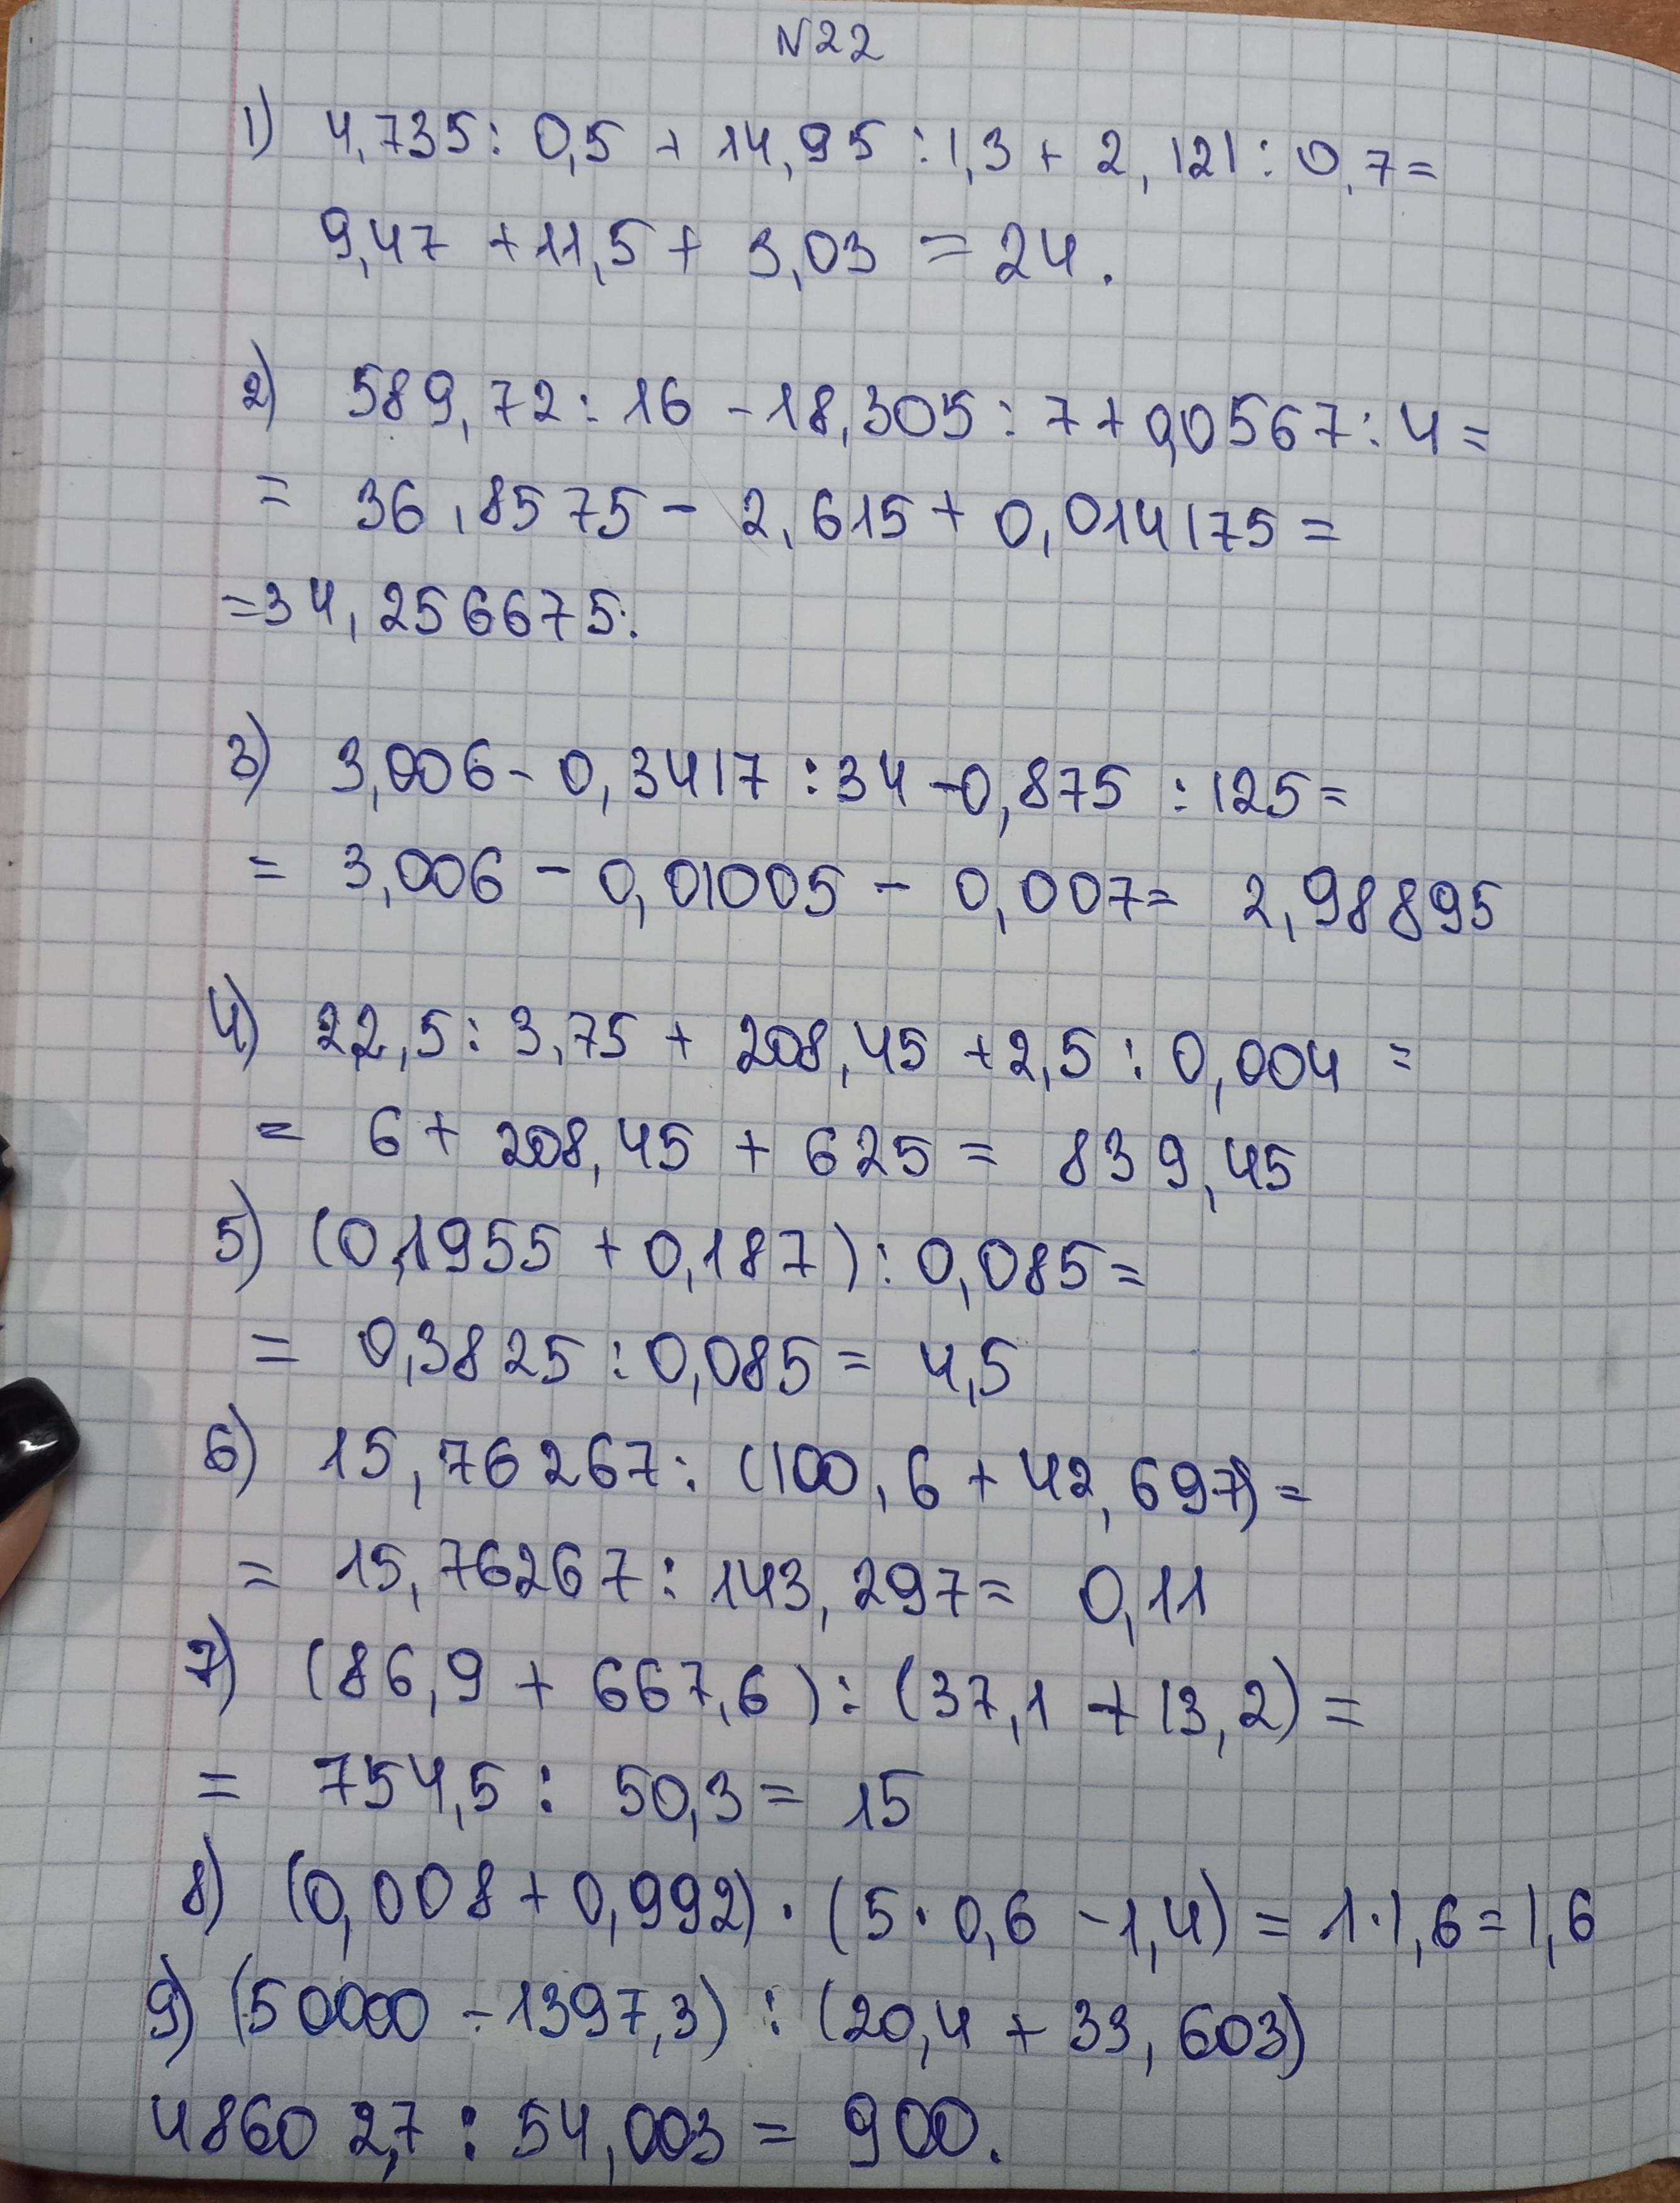 N22
1) 4,735 : 0,5 + 14,95 : 1,3 + 2,121 : 0,7 =
9,47 + 11,5 + 3,03 = 24.
2) 589,72 : 16 - 18,305 : 7 + 0,0567 : 4 =
= 36,8575 - 2,615 + 0,014175 =
= 34,256675.
3) 3,006 - 0,3417 : 34 - 0,875 : 125 =
= 3,006 - 0,01005 - 0,007 = 2,98895
4) 22,5 : 3,75 + 208,45 + 2,5 : 0,004 =
= 6 + 208,45 + 625 = 839,45
5) (0,1955 + 0,187) : 0,085 =
= 0,3825 : 0,085 = 4,5
6) 15,76267 : (100,6 + 42,697) =
= 15,76267 : 143,297 = 0,11
7) (86,9 + 667,6) : (37,1 + 13,2) =
= 754,5 : 50,3 = 15
8) (0,008 + 0,992) · (5 · 0,6 - 1,4) = 1 · 1,6 = 1,6
9) (50000 - 1397,3) : (20,4 + 33,603)
48602,7 : 54,003 = 900.